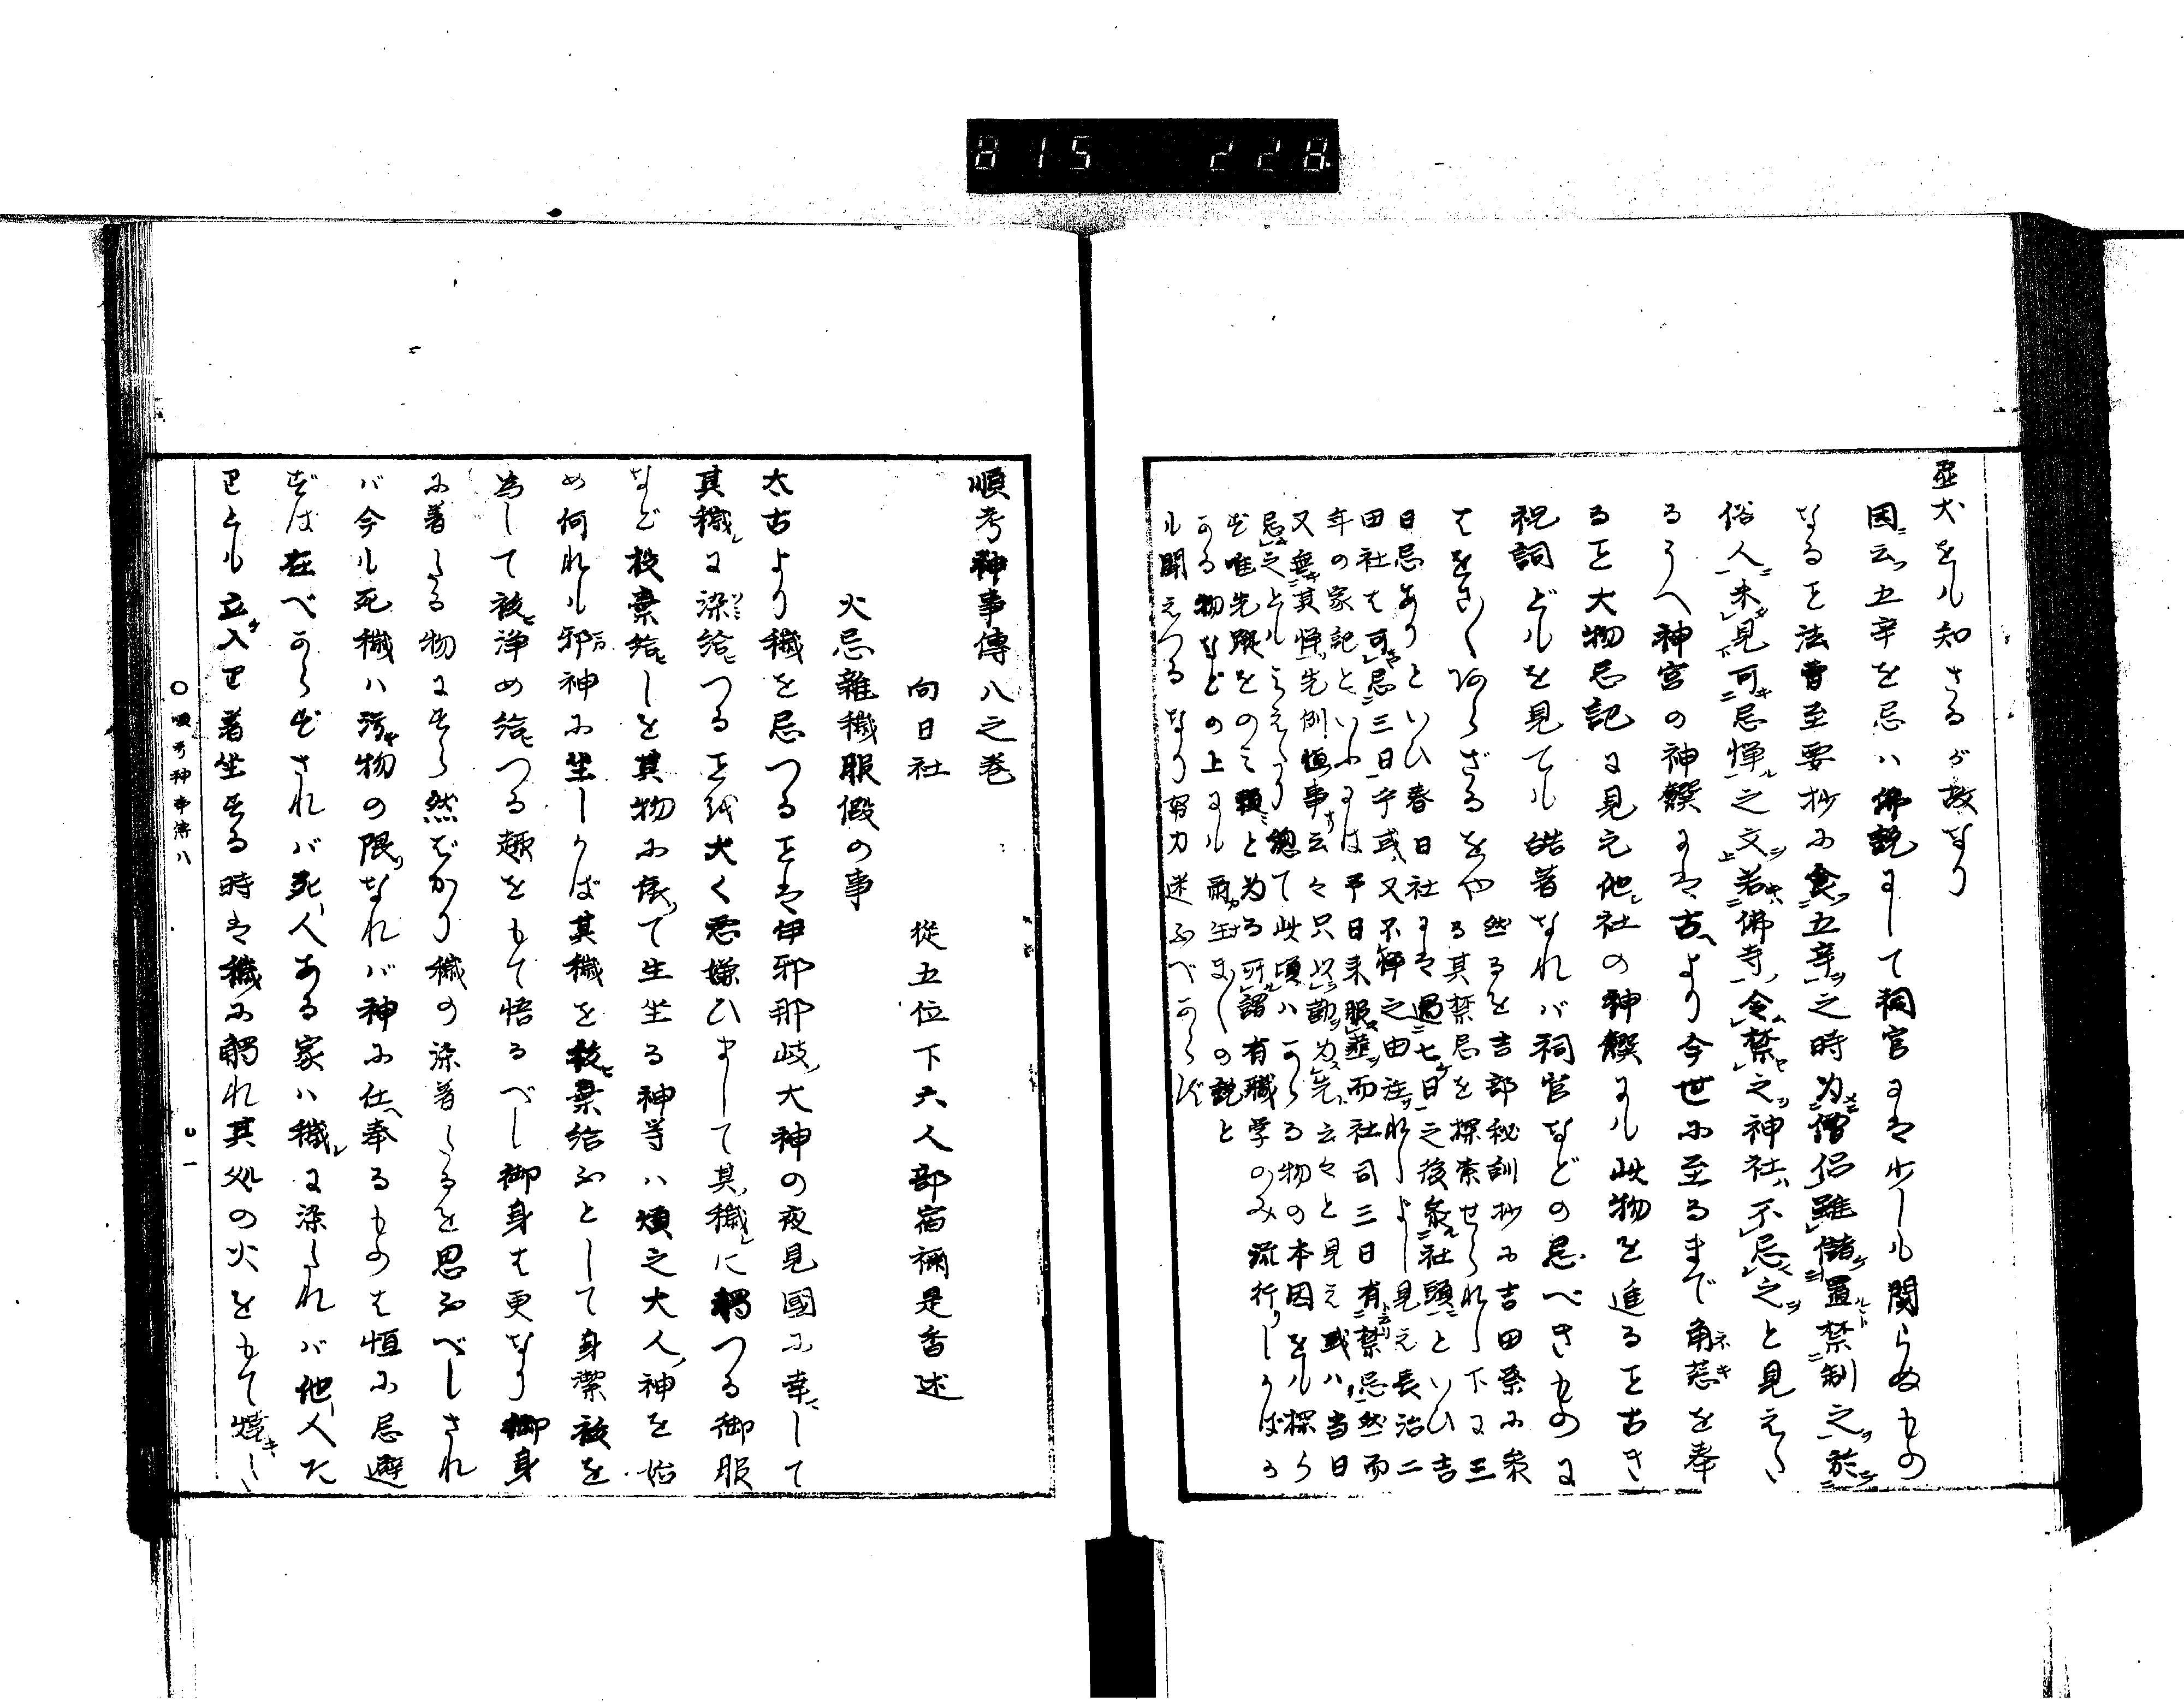 815 228
歪犬をも知さるが故なり
因云五辛を忌ハ佛説にして祠官には少しも関らぬもの
なるを法曹至要抄に食五辛之時為僧侶雖儲置禁制之於
俗人未見可忌憚之文若佛寺令禁之神社不忌之と見えた
るうへ神宮の神饌には古より今世に至るまで角葱を奉
るを大物忌記に見え他社の神饌にも此物を進るを古き
祝詞どもを見ても皓著なれバ祠官などの忌べきものに
はをさ〳〵あらざるをや
然るを吉部秘訓抄に吉田祭に参
る其禁忌を探索せられし下に三
日忌ありといひ春日社には過七日之後参社頭といひ吉
田社は可忌三日乎或又不憚之由注れしよし見え長治二
年の家記といふには予日来服薤而社司三日有禁忌然而
又無其憚先例恒事云々只以勘為先云々と見え或ハ当日
忌之とも見えたり總て此頃ハかゝる物の本因をも探ら
ず唯先蹤をのミ頼と為る所謂有職学のみ流行しかばか
かる物などの上にも爾生ましの説と
も聞えつるなり努力迷ふべからず
順考神事傳八之巻
向日社　從五位下六人部宿禰是香述
火忌雜穢服假の事
太古より穢を忌つるをば伊邪那岐大神の夜見國に幸して
其穢に染給つるを始大く悪嫌ひまして其穢に觸つる御服
など投棄給しを其物に依て生坐る神等ハ煩之大人神を始
め何れも邪神に坐しかば其穢を投棄給ふとして身潔祓を
為して祓浄め給つる趣をもて悟るべし御身は更なり御身
に着たる物にすら然ばかり穢の染着たるを思ふべしされ
バ今も死穢ハ汚物の限なれバ神に仕奉るものは恒に忌避
ずば在べからずされバ死人ある家ハ穢に染たれバ他人た
りとも立入り著坐する時は穢に觸れ其処の火をもて燒し
○順考神事傳八　○一